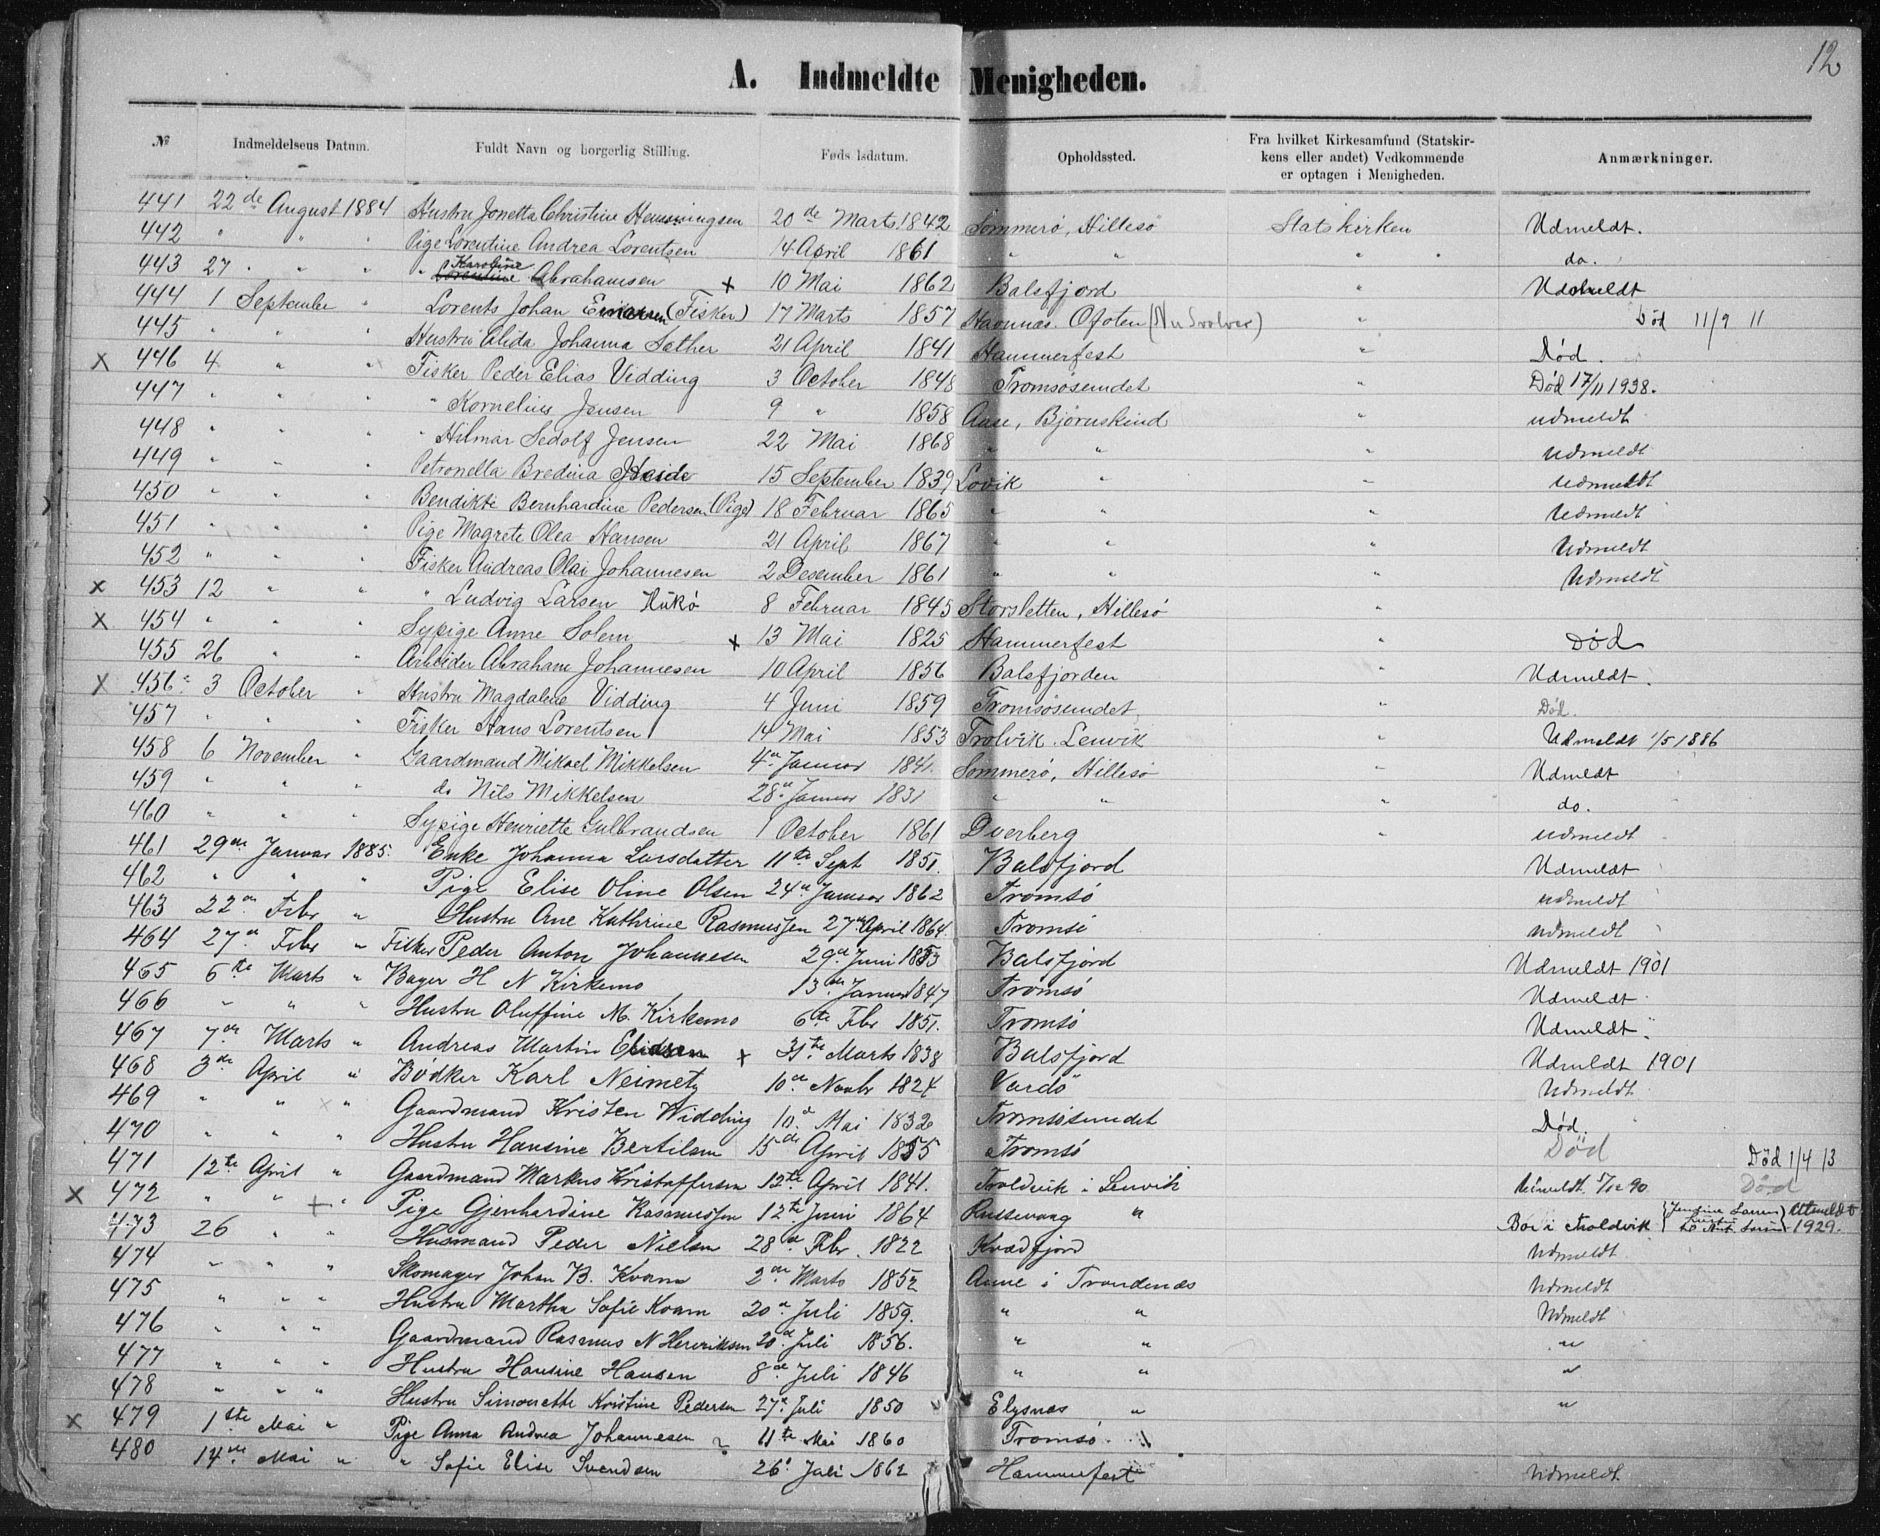 12
A. Indmeldte Menigheden.
№ Indmeldelsens Datum. Fuldt Navn og borgerlig Stilling. Føds lsdatum. Opholdssted. Fra hvilket Kirkesamfund (Statskirkens eller andet) Vedkommende er optagen i Menigheden. Anmærkninger.
441 22de August 1884 Hustru Jonetta Christine Henningsen 20de Marts 1842 Sommerø, Hillesø Statskirken Udmeldt.
442 " " " Pige Lorentine Andrea Lorentsen 14 April 1861 " " " " do.
443 27 " " " " Karoline Abrahamsen x 10 Mai 1862 Balsfjord " Udmeldt
444 1 September " Lorents Johan (Fisker) 17 Marts 1857 Havnnæs. Ofoten (Nu Svolvær) " Død 11/9 11
445 " " " Hustru Elida Johanna Sæther 21 April 1841 Hammerfest " Død.
x 446 4 " " Fisker Peder Elias Vidding 3 October 1848 Tromsøsundet " Død 17/11 1938.
447 " " " " Kornelius Jensen 9 " 1858 Aase, Bjørnskind " udmeldt
448 " " " " Hilmar Sedolf Jensen 22 Mai 1868 " " " Udmeldt
449 " " " Petronella Bredina 15 September 1839 Lovik " " udmeldt
450 " " " Bendikte Bernhardine Pedersen (Pige) 18 Februar 1865 " " " Udmeldt
451 " " " Pige Magrete Olea Hansen 21 April 1867 " " " Udmeldt
452 " " " Fisker Andreas Olai Johannesen 2 Desember 1861 " " " Udmeldt
x 453 12 " " " Ludvig Larsen Hukø 8 Februar 1845 Storsletten, Hillesø "
x 454 " " " Sypige Anne Solem x 13 Mai 1825 Hammerfest " Død
455 26 " " Arbeider Abraham Johannesen 10 April 1856 Balsfjorden " Udmeldt.
x 456 3 October " Hustru Magdalene Vidding 4 Juni 1859 Tromsøsundet " Død.
457 " " " Fisker Hans Lorentsen 14 Mai 1853 Trolvik. Lenvik " Udmeldt 1/5 1886
458 6 November " Gaardmand Mikael Mikkelsen 4de Januar 1841. Sommerø, Hillesø " Udmeldt
459 " " " do Nils Mikkelsen 28de Januar 1831 " " " do.
460 " " " Sypige Henriette Gulbrandsen 1 October 1861 Dverberg " udmeldt
461 29de Januar 1885. Enke Johanna Larsdatter 11te Sept 1851. Balsfjord Udmeldt
462 " " " Pige Elise Oline Olsen 24de Januar 1862 Tromsø udmeldt
463 22de Febr " Hustru Ane Kathrine Rasmussen 27de April 1864 Tromsø udmeldt
464 27de Febr " Fisker Peder Anton Johannesen 29de Juni 1853 Balsfjord Udmeldt 1901
465 6te Marts " Bager H N Kirkemo 13de Januar 1847 Tromsø Udmeldt
466 " " " Hustru Oluffine M. Kirkemo 6te Febr 1851. Tromsø Udmeldt.
467 7de Marts " Andreas Martin x 31te Marts 1838 Balsfjord Udmeldt 1901
468 3de April " Bødker Karl Neimetz 10de Novbr 1824 Vardø Udmeldt
469 " " x " Gaardmand Kristen Widding 10d Mai 1832 Tromsøsundet Død.
470 " " " Hustru Hansine Bertilsen 15de April 1855 Tromsø Død
471 12te April " Gaardmand Markus Kristoffersen 12te April 1841. Troldvik i Lenvik Udmeldt 90 Død Død 1/4 13
x 472 " " + " Pige Gjenhardine Rasmussen 12te Juni 1864 Russevaag " Bor i Troldvik Utmeldt 1929.
473 26 " " Husmand Peder Nielsen 28de Febr. 1822 Kvædfjord Udmeldt
474 " " " Skomager Johan B. Kvam 2den Marts 1852 Aune i Trondenæs Udmeldt
475 " " " Hustru Martha Sofie Kvam 20de Juli 1859. " " Udmeldt
476 " " " Gaardmand Rasmus N Henriksen 20d Juli 1856. " " "
477 " " " Hustru Hansine Hansen 8de Juli 1846 " " "
478 " " " Hustru Simonette Kristine Pedersen 27de Juli 1850 Elgsnæs " "
x 479 1ste Mai " Pige Anna Andrea Johannesen 11te Mai 1860 Tromsø.
480 14de Mai " " Sofie Elise Svendsen 26d Juli 1862 Hammerfest Udmeldt.